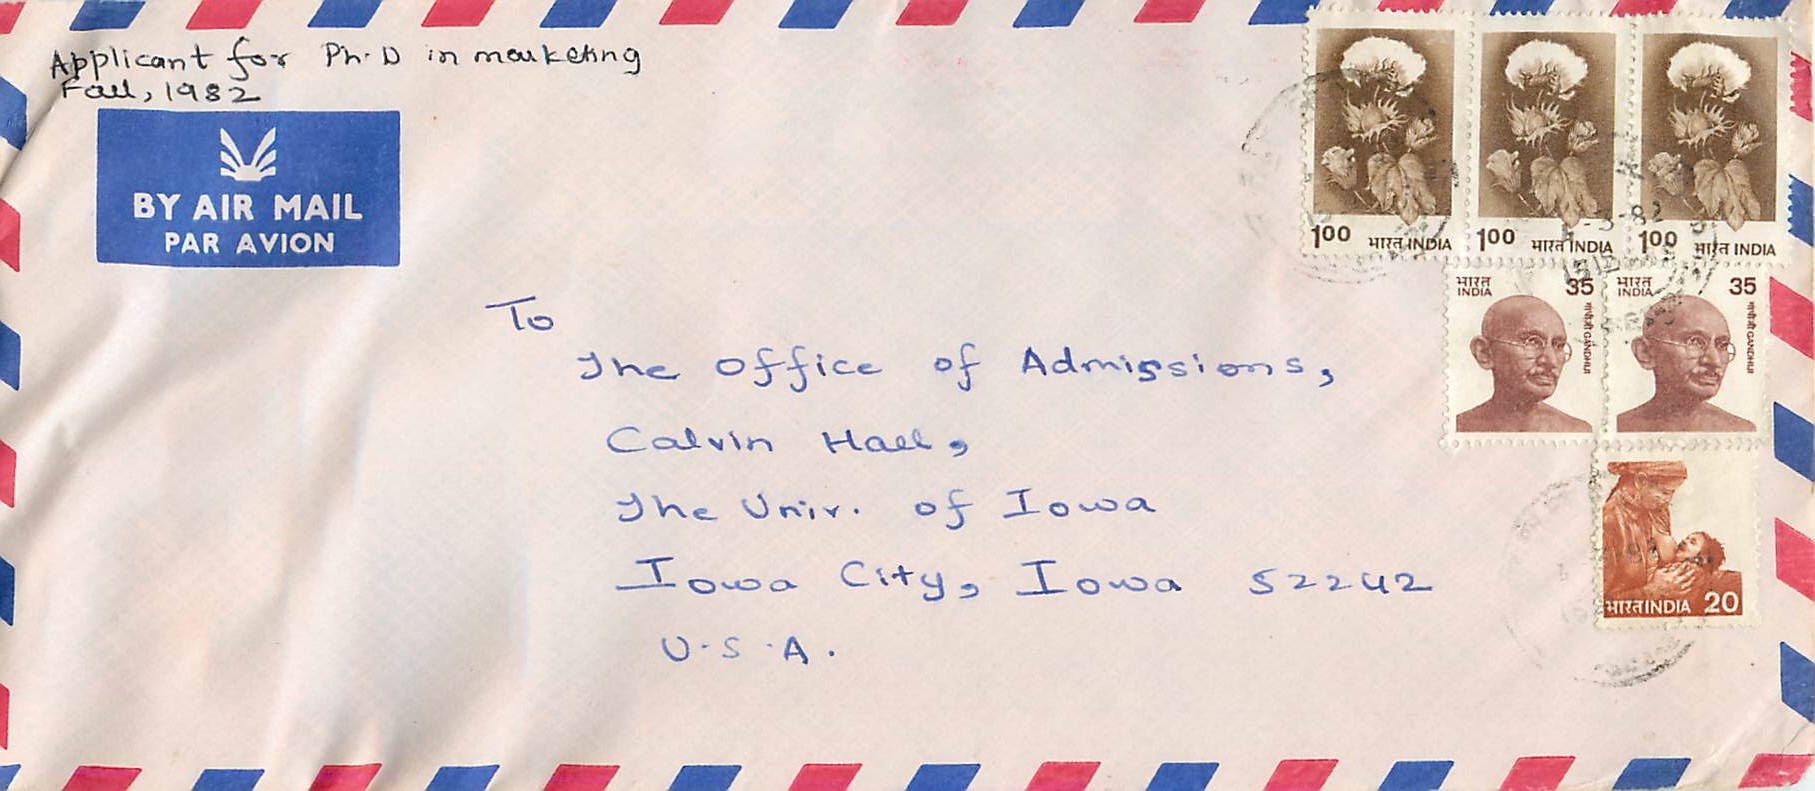 Applicant for Ph.D in marketing
Fall, 1982
BY AIR MAIL
PAR AVION
To
The Office of Admissions,
Calvin Hall,
The Univ. of Iowa
Iowa City, Iowa 52242
U.S.A.
100 भारत INDIA
100 भारत INDIA
100 भारत INDIA
भारत
INDIA
35
गांधीजी GANDHIJI
भारत
INDIA
35
गांधीजी GANDHIJI
भारत INDIA 20